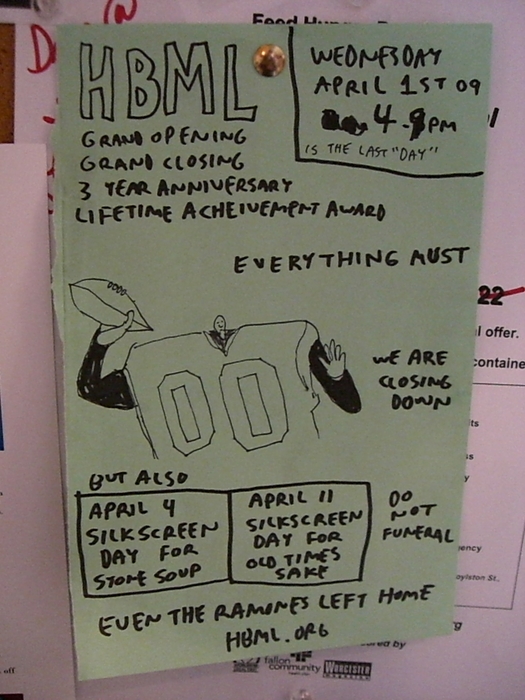 HBML
GRAND OPENING
GRAND CLOSING
3 YEAR ANNIVERSARY
LIFETIME ACHEIVEMENT AWARD
WEDNESDAY
APRIL 1ST 09
4-9PM
IS THE LAST "DAY"
EVERYTHING MUST
00
WE ARE
CLOSING
DOWN
BUT ALSO
APRIL 4
SILKSCREEN
DAY FOR
STONE SOUP
APRIL 11
SILKSCREEN
DAY FOR
OLD TIMES
SAKE
DO
NOT
FUNERAL
EVEN THE RAMONES LEFT HOME
HBML.ORG
22
l offer.
containe
ency
oylston St.
ed by
fallon
community
WORCESTER
off